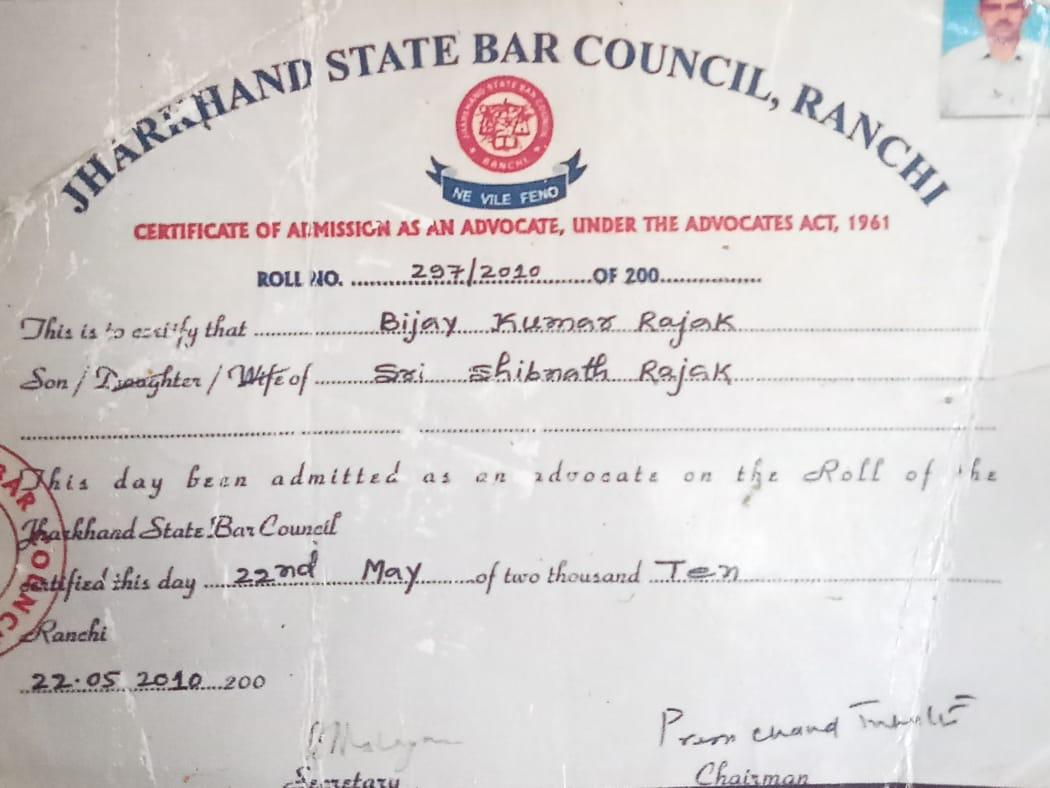 JHARKHAND STATE BAR COUNCIL, RANCHI
JHARKHAND STATE BAR COUNCIL
RANCHI
NE VILE FENO
CERTIFICATE OF ADMISSION AS AN ADVOCATE, UNDER THE ADVOCATES ACT, 1961
ROLL NO. ..........297/2010..........OF 200...............
This is to certify that ............... Bijay Kumar Rajak ...............
Son / Daughter / Wife of ........ Sri Shibnath Rajak ...............
This day been admitted as an advocate on the Roll of the
Jharkhand State Bar Council
certified this day .....22nd May.......of two thousand Ten ...............
Ranchi
22.05 2010....200
BAR COUNC
Prem chand
Secretary
Chairman